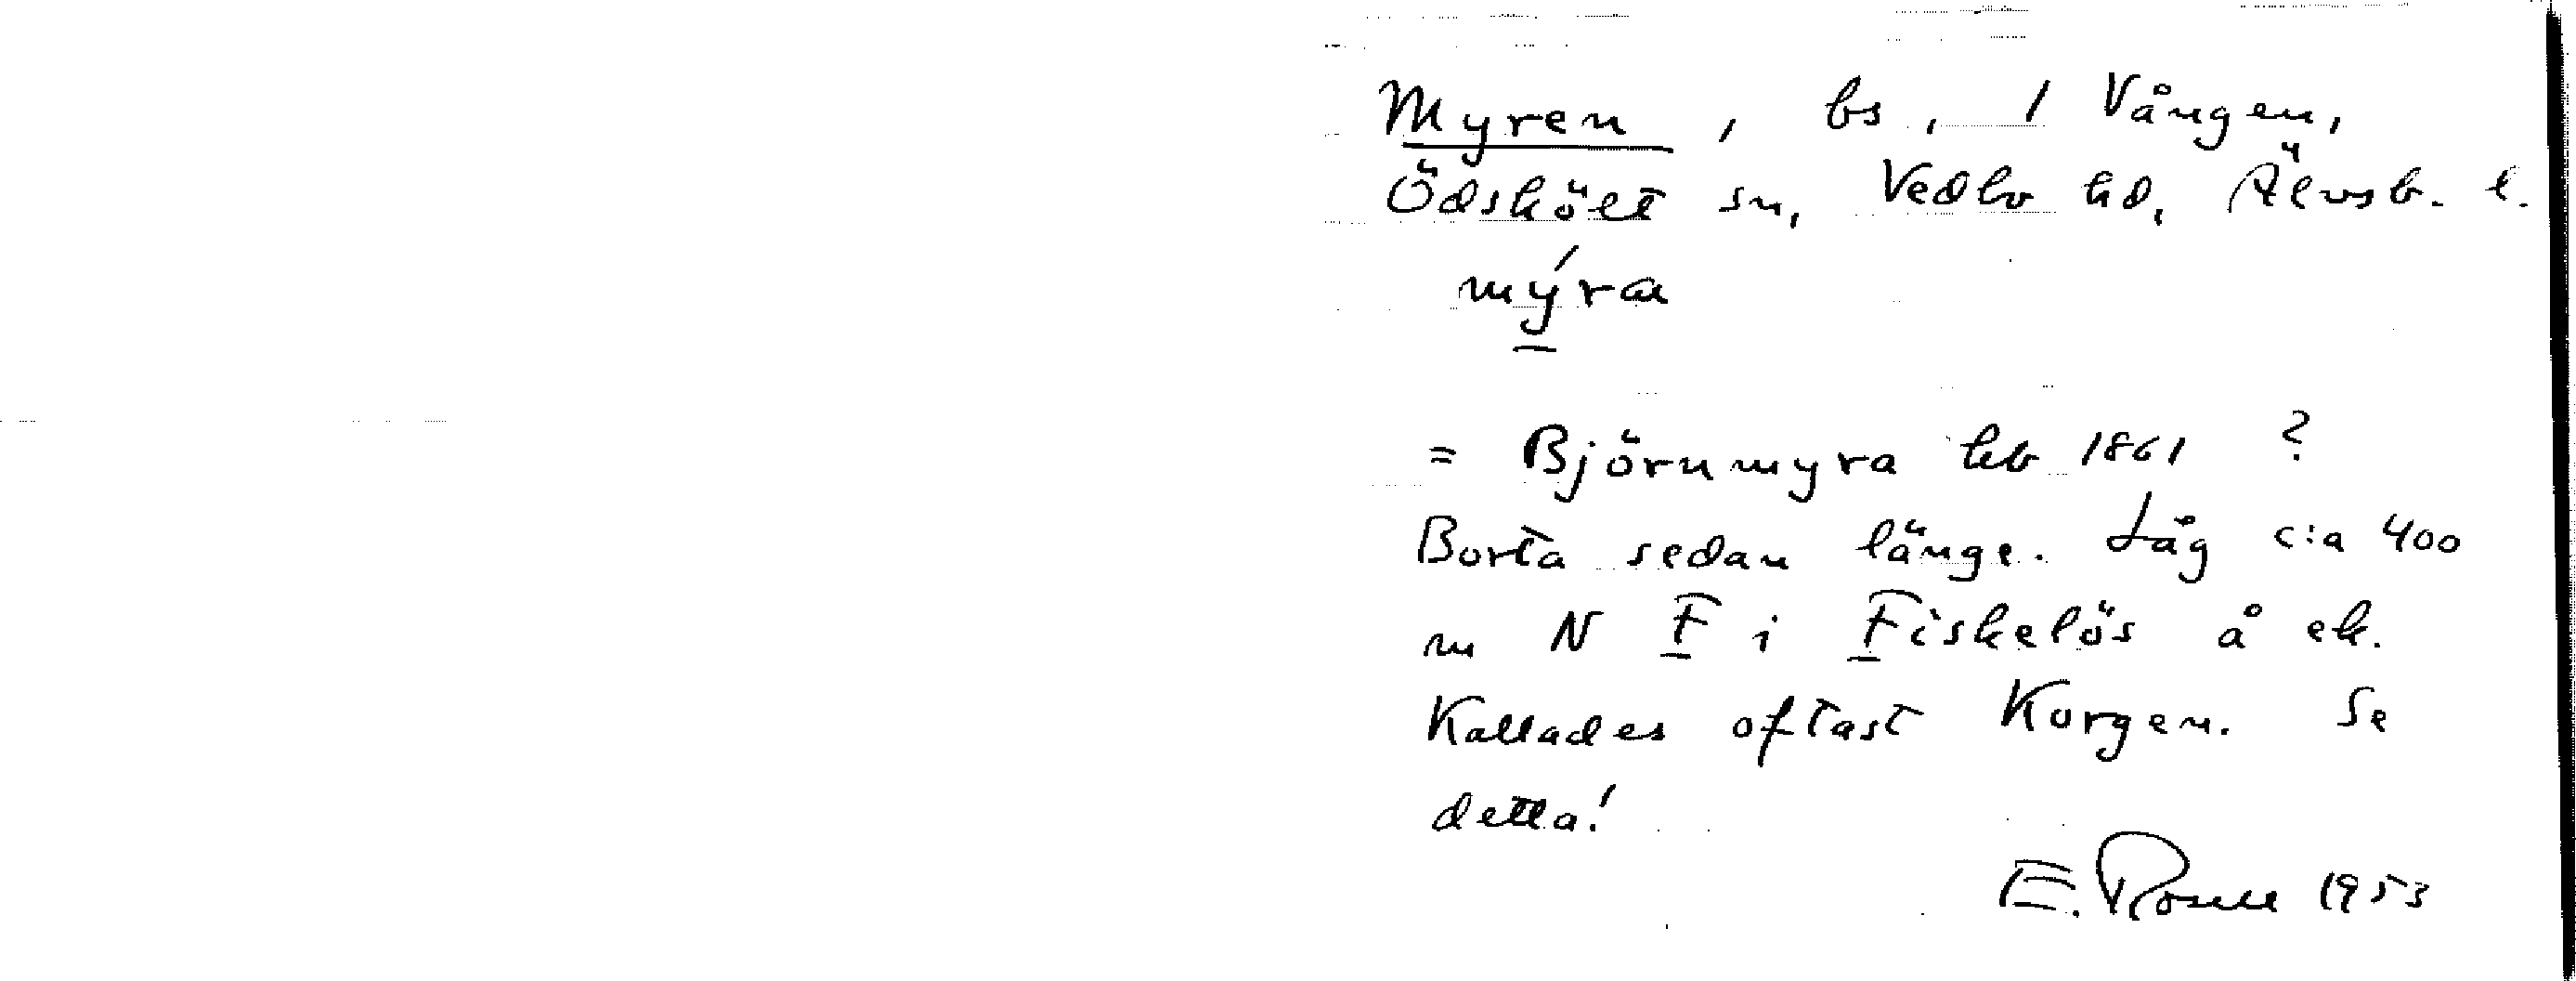 Myren, bs, 1 Vången,
Ödskölt sn, Vedbo hd, Älvsb. l.
mýra
= Björnmyra hb 1861 ?
Borta sedan länge. Låg c:a 400
m N F i Fiskelös å ek.
Kallades oftast Korgen. Se
detta!
E. Rosell 1953